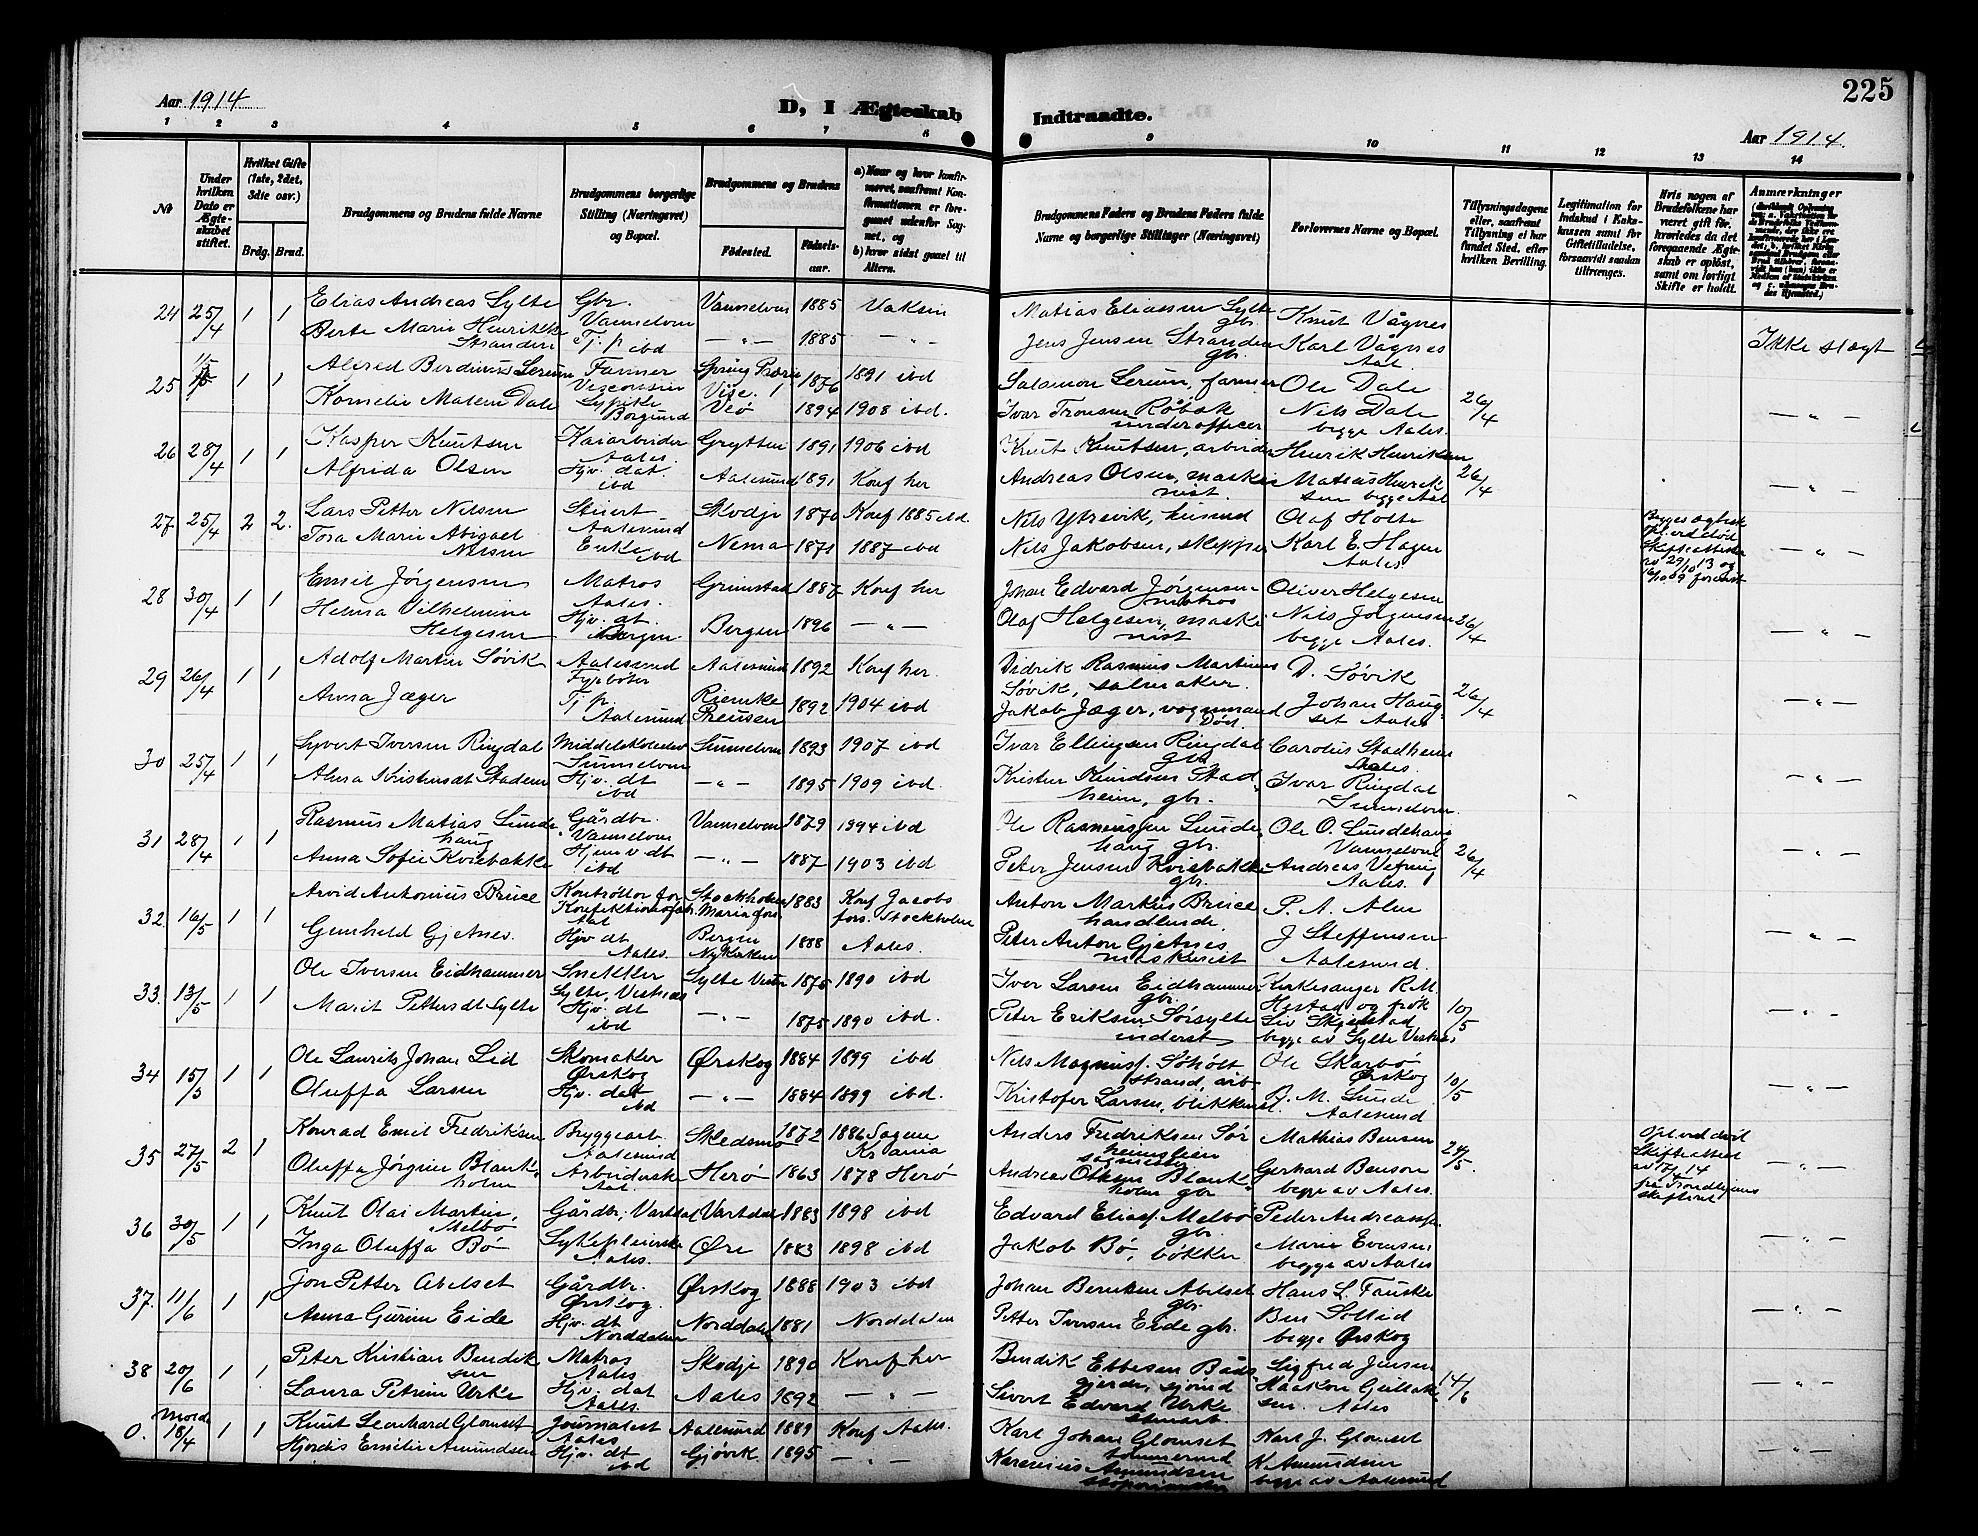 225
Aar 1914
D, I Ægteskab Indtraadte.
Aar 1914.
1 2 3 4 5 6 7 8 9 10 11 12 13 14
№
Under hvilken Dato er Ægteskabet stiftet.
Hvilket Gifte (1ste, 2det, 3die osv.)
Brdg. Brud.
Brudgommens og Brudens fulde Navne
Brudgommens borgerlige Stilling (Næringsvei) og Bopæl.
Brudgommens og Brudens
Fødested.
Fødselsaar.
a) Naar og hvor konfirmeret, saafremt Konfirmationen er foregaaet udenfor Sognet, og
b) hvor sidst gaaet til Alters.
Brudgommens Faders og Brudens Faders fulde Navne og borgerlige Stillinger (Næringsvei)
Forlovernes Navne og Bopæl.
Tillysningsdagene eller, saafremt Tillysning ei har fundet Sted, efter hvilken Bevilling.
Legitimation for Indskud i Enkekassen samt for Giftetilladelse, forsaavidt saadan tiltrænges.
Hvis nogen af Brudefolkene har været gift før, hvorledes da det foregaaende Ægteskab er opløst, samt om lovligt Skifte er holdt.
Anmærkninger
24 25/4 1 1 Elias Andreas Sylte Gbr. Vannelven Vannelven 1885 Vaksin Matias Eliassen Sylte gbr. Knut Vågnes
Berte Marie Henrikke Stranden Tj. p. ibd — " — 1885 — " — Jens Jensen Stranden gbr. Karl Vågnes Aal. Ikke slegt
25 1 1 Alfred Berdinus Lerum Farmer 1876 1891 ibd Salamon Lerum, farmer Ole Dale
Kornelie Malene Dale Sypike Borgund Veø 1894 1908 ibd. Ivar Tronsen Råbak underofficer Nils Dale begge Aales. 26/4 — " —
26 28/4 1 1 Kasper Knutsen Kaiarbeider Aales. Grytten 1891 1906 ibd Knut Knutsen, arbeider Henrik Henriksen
Alfrida Olsen Hjv. dat. ibd Aalesund 1891 Konf her Andreas Olsen, maskinist. Matias Henriksen begge Aal 26/4 — " —
27 25/4 2 2. Lars Petter Nilsen Stuert Aalesund Skodje 1870 Konf 1885 ibd. Nils Ytrevik, husmd Olaf Holte
Tora Marie Abigael Nilsen Enke ibd 1871 1887 ibd Nils Jakobsen, skipper Karl E. Hagen Aales — " —
28 30/4 1 1 Emil Jörgensen Matros Aales. Grimstad 1887 Konf her Johan Edvard Jörgensen matros Oliver Helgesen
Helma Vilhelmine Helgesen Hjv. dt. Bergen 1896 — " — Olaf Helgesen, maskinist Nils Jörgensen begge Aales. 26/4 — " —
29 26/4 1 1 Adolf Martin Søvik Aalesund Aalesund 1892 Konf her Didrik Rasmus Martinus Søvik, salmaker. D. Søvik
Anna Jæger Tj. p. Aalesund Preusen 1892 1904 ibd Jakob Jæger, vognmand Död Johan Haugset Aales 26/4 — " —
30 25/4 1 1 Syvert Iversen Ringdal Sunnelven Sunnelven 1893 1907 ibd Ivar Ellingsen Ringdal gbr. Carolus Stadheim Aales.
Alma Kristensdt Stadem Hjv. dt ibd — " — 1895 1909 ibd. Kristen Knudsen Stadheim, gbr. Ivar Ringdal Sunnelven
31 28/4 1 1 Rasmus Matias Sundehaug Gårdbr. Vannelven Vannelven 1879 1894 ibd Ole Rasmussen Sundehaug gbr. Ole O. Sundehaug Vannelven
Anna Sofie Kviebakke Hjemv dt ibd — " — 1887 1903 ibd Peter Jensen Kviebakke gbr. Andreas Aales. 26/4 — " —
32. 16/5 1 1 Arvid Antonius Bruce Kontrollør for Konfektionsfabr. Aal Stockholm Maria fors. 1883 Konf Jacobs fors. Stockholm Anton Markus Bruce handlende P. A. Alm
Gunhild Gjetnes. Hjv dt Aales. Bergen Nykirken 1888 Aales. Peter Anton Gjetnes maskinist J Steffensen Aalesund. — " —
33. 13/5 1 1 Ole Iversen Eidhammer Snekker Sylte, Vestnes Sylte Vestn 1875 1890 ibd Iver Larsen Eidhammer gbr. Kirkesanger R.M. Hestad og frøk
Marit Pettersdt Sylte Hjv. dt ibd — " — 1875 1890 ibd. Peter Eriksen Sørsylte inderst Liv Skjelstad begge av Sylte Vestnes 10/5 — " —
34 15/5 1 1 Ole Laurits Johan Lid Skomaker Ørskog Ørskog 1884 1899 ibd Nils Magnus. Søholt strand, arb. Ole Skarbø Ørskog
Oluffa Larsen Hjv. dat ibd — " — 1884 1899 ibd. Kristofer Larsen, blikksl. B. M. Lunde Aalesund 10/5 — " —
35 27/5 2 1 Konrad Emil Fredriksen Bryggearb. Aalesund Skedsmo 1872 1886 Sagene Kr.ania Anders Fredriksen Sørheimslien sagmester Mathias Bensen 24/5.
Oluffa Jørgine Blankholm Arbeiderske Aal. Herø 1863 1878 Herø Andreas Olsen Blankholm gbr. Gerhard Benson begge av Aales. — " —
36 30/5 1 1 Knut Olai Martin Melbø Gårdbr. Vartdal Vartdal 1883 1898 ibd Edvard Elias. Melbø gbr. Peder Andreassen
Inga Oluffa Bø Sykepleierske Aales. Øre 1883 1898 ibd Jakob Bø, bøkker Marie Evensen begge av Aales
37. 11/6 1 1 Jon Petter Abelset Gårdbr. Ørskog. Ørskog 1888 1903 ibd Johan Berntsen Abelset gbr. Hans L. Fauske
Anna Gurine Eide Hjv. dt Norddalen Norddalen 1881 Norddalen Petter Iversen Eide gbr. Ben Sollid begge Ørskog — " —
38 20/6 1 1 Peter Kristian Bendiksen Matros Aales Skodje 1890 Konf her Bendik Ebbesen Bådsgjerde, sjømd Sigfred Jensen
Laura Petrine Urke Hjv. dat Aales. Aales 1892 — " — Sivert Edvard Urke stuart Haakon Gullaksen. Aales 14/6 — " —
0. Molde 18/4 1 1 Knut Leonhard Glomset Journalist Aales Aalesund 1889 Konf Aales. Karl Johan Glomset Karl J. Glomset
Hjørdis Emilie Amundsen Hjv. dt ibd Gjøvik 1895 — " — Karenius Amundsen K Amundsen begge av Aalesund — " —